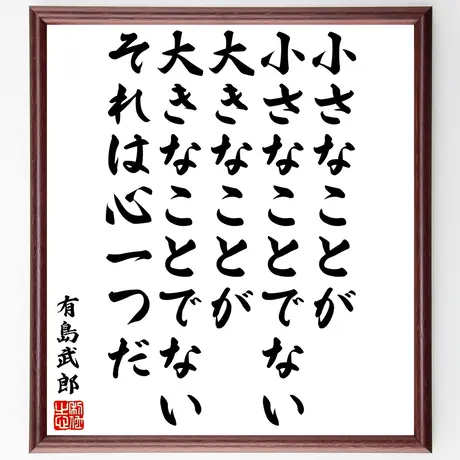 小さなことが
小さなことでない
大きなことが
大きなことでない
それは心一つだ
有島武郎